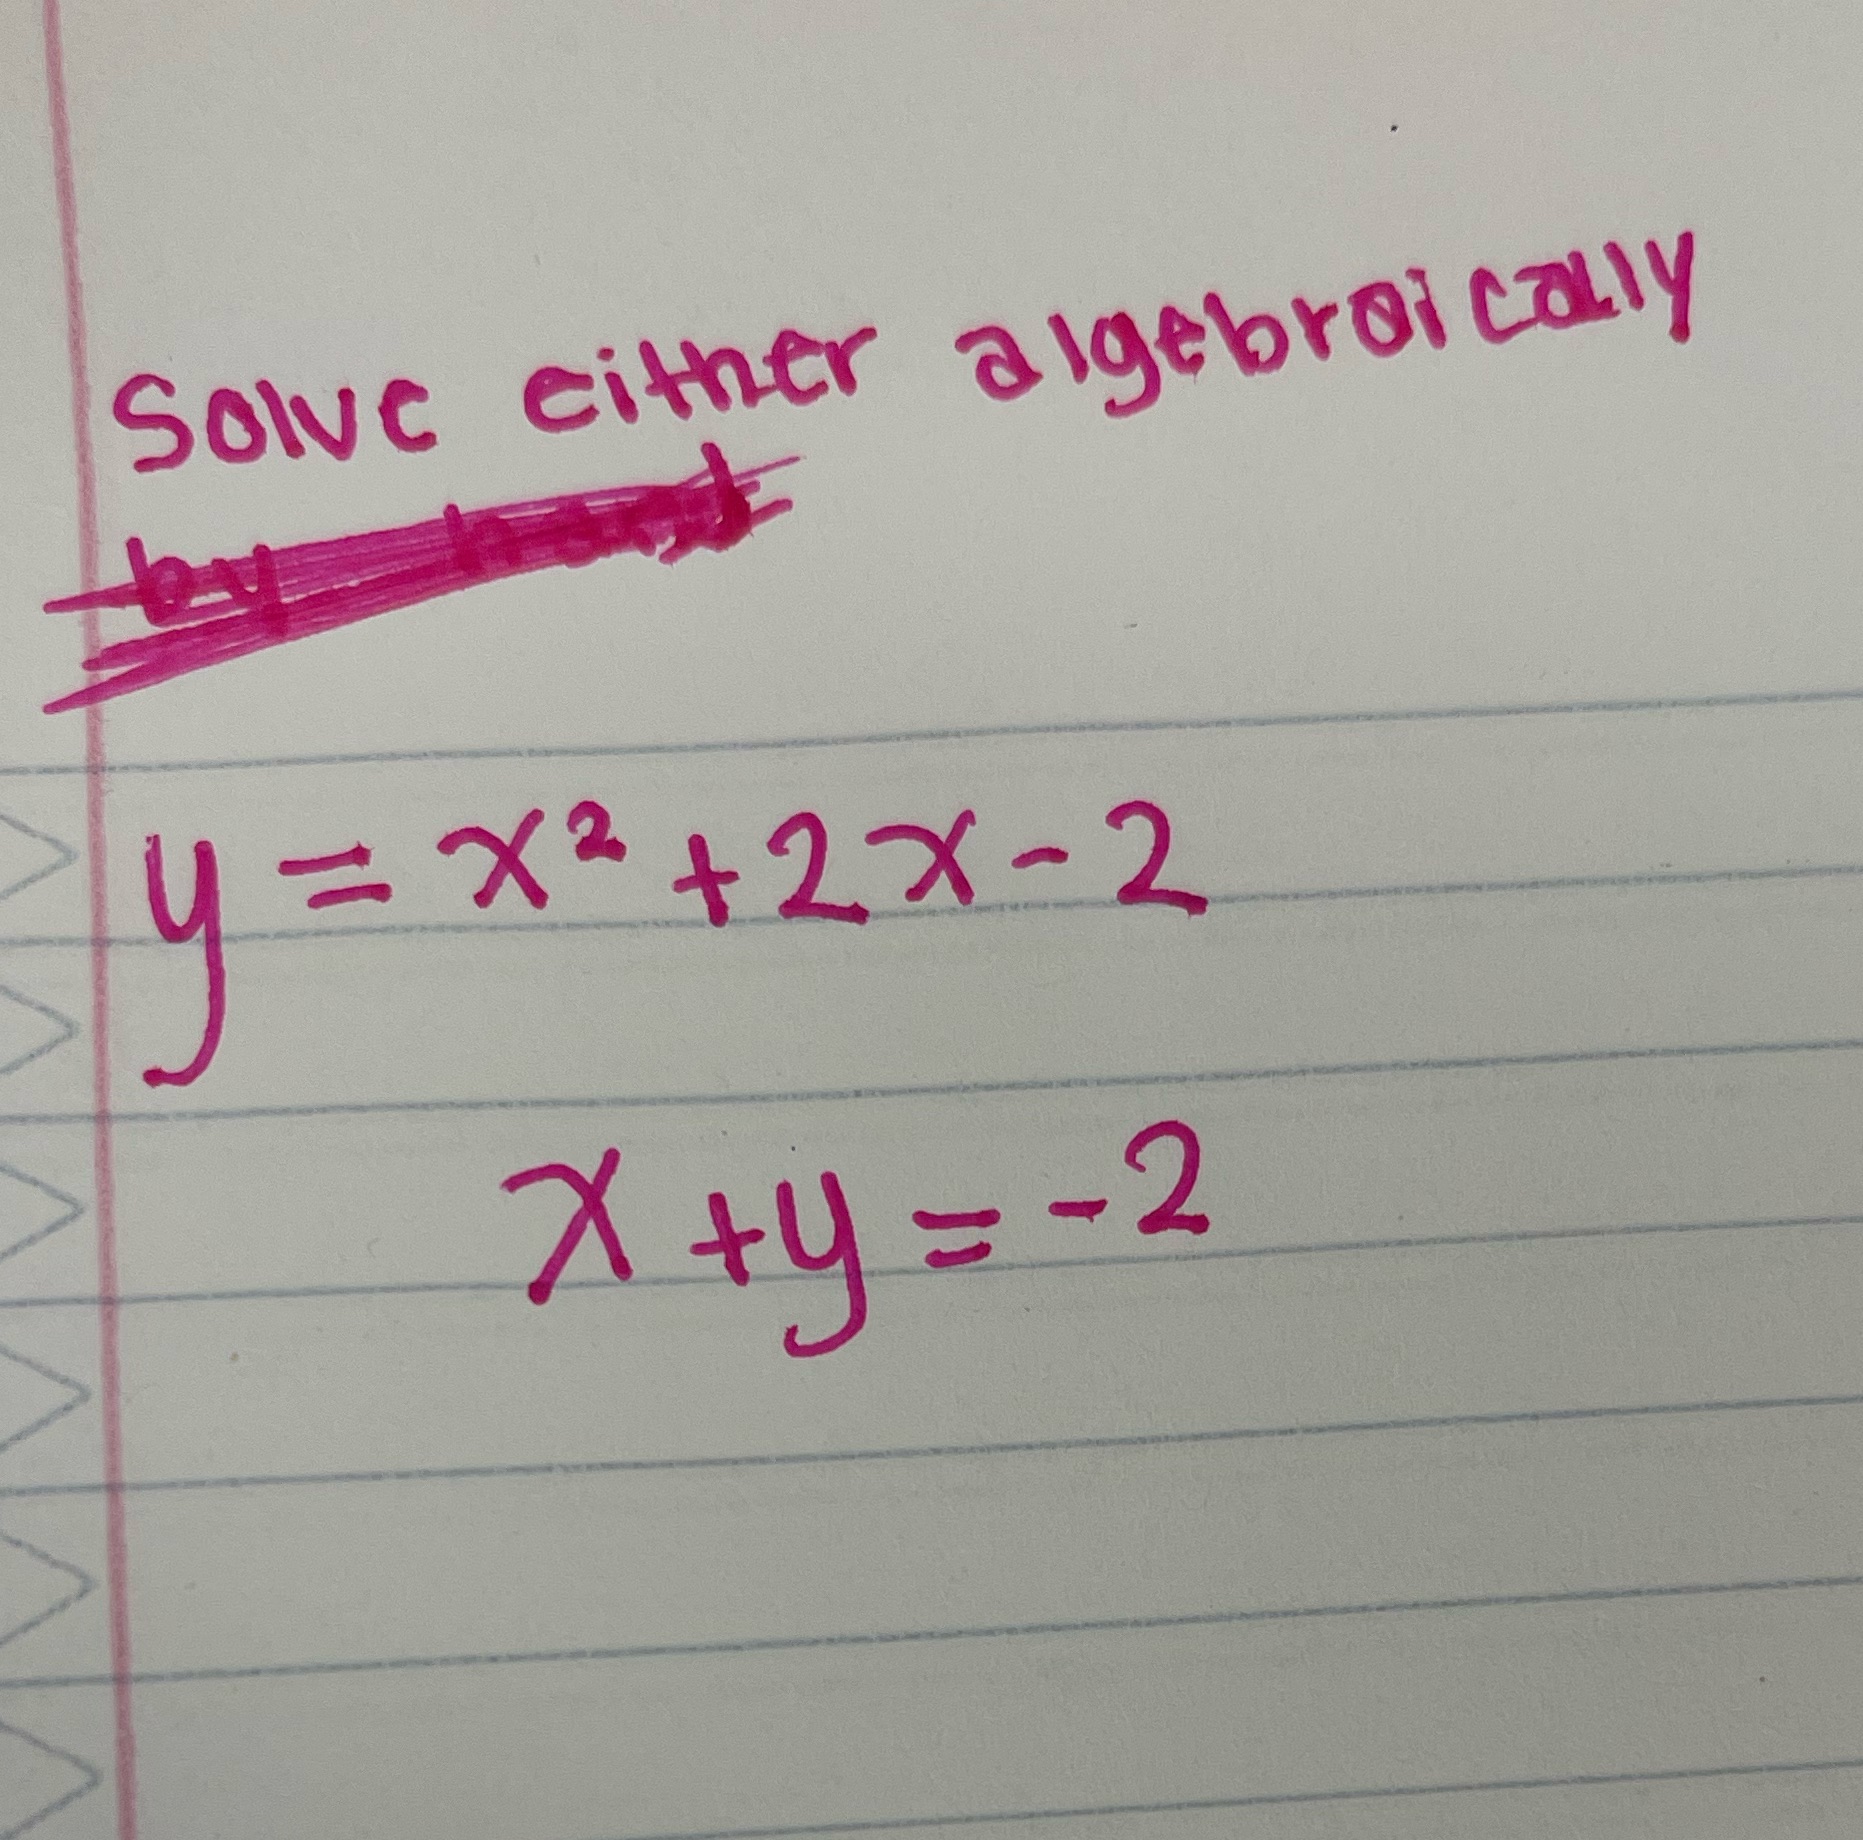 Solve either algebraically
by hand
y = x² + 2x - 2
x + y = -2